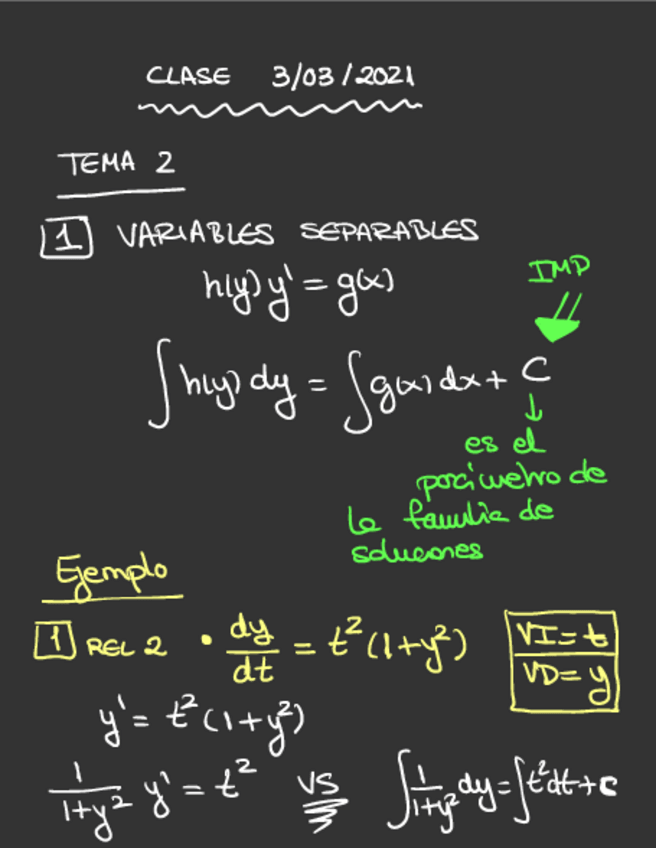 CLASE 3/03/2021
TEMA 2
1 VARIABLES SEPARABLES
h(y) y' = g(x)
IMP
∫ h(y) dy = ∫ g(x) dx + C
↓
es el
parámetro de
la familia de
soluciones
Ejemplo
1 REL 2 • dy/dt = t² (1+y²)
VI = t
VD = y
y' = t² (1+y²)
1/(1+y²) y' = t² VS ∫ 1/(1+y²) dy = ∫ t² dt + c